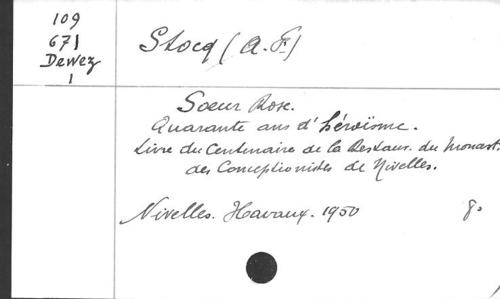 109
671
Dewez
1
Stocq (A. F.)
Soeur Rose.
Quarante ans d'héroïsme.
Livre du Centenaire de la Restaur. du Monast.
des Conceptionistes de Nivelles.
Nivelles. Havaux. 1950 8°